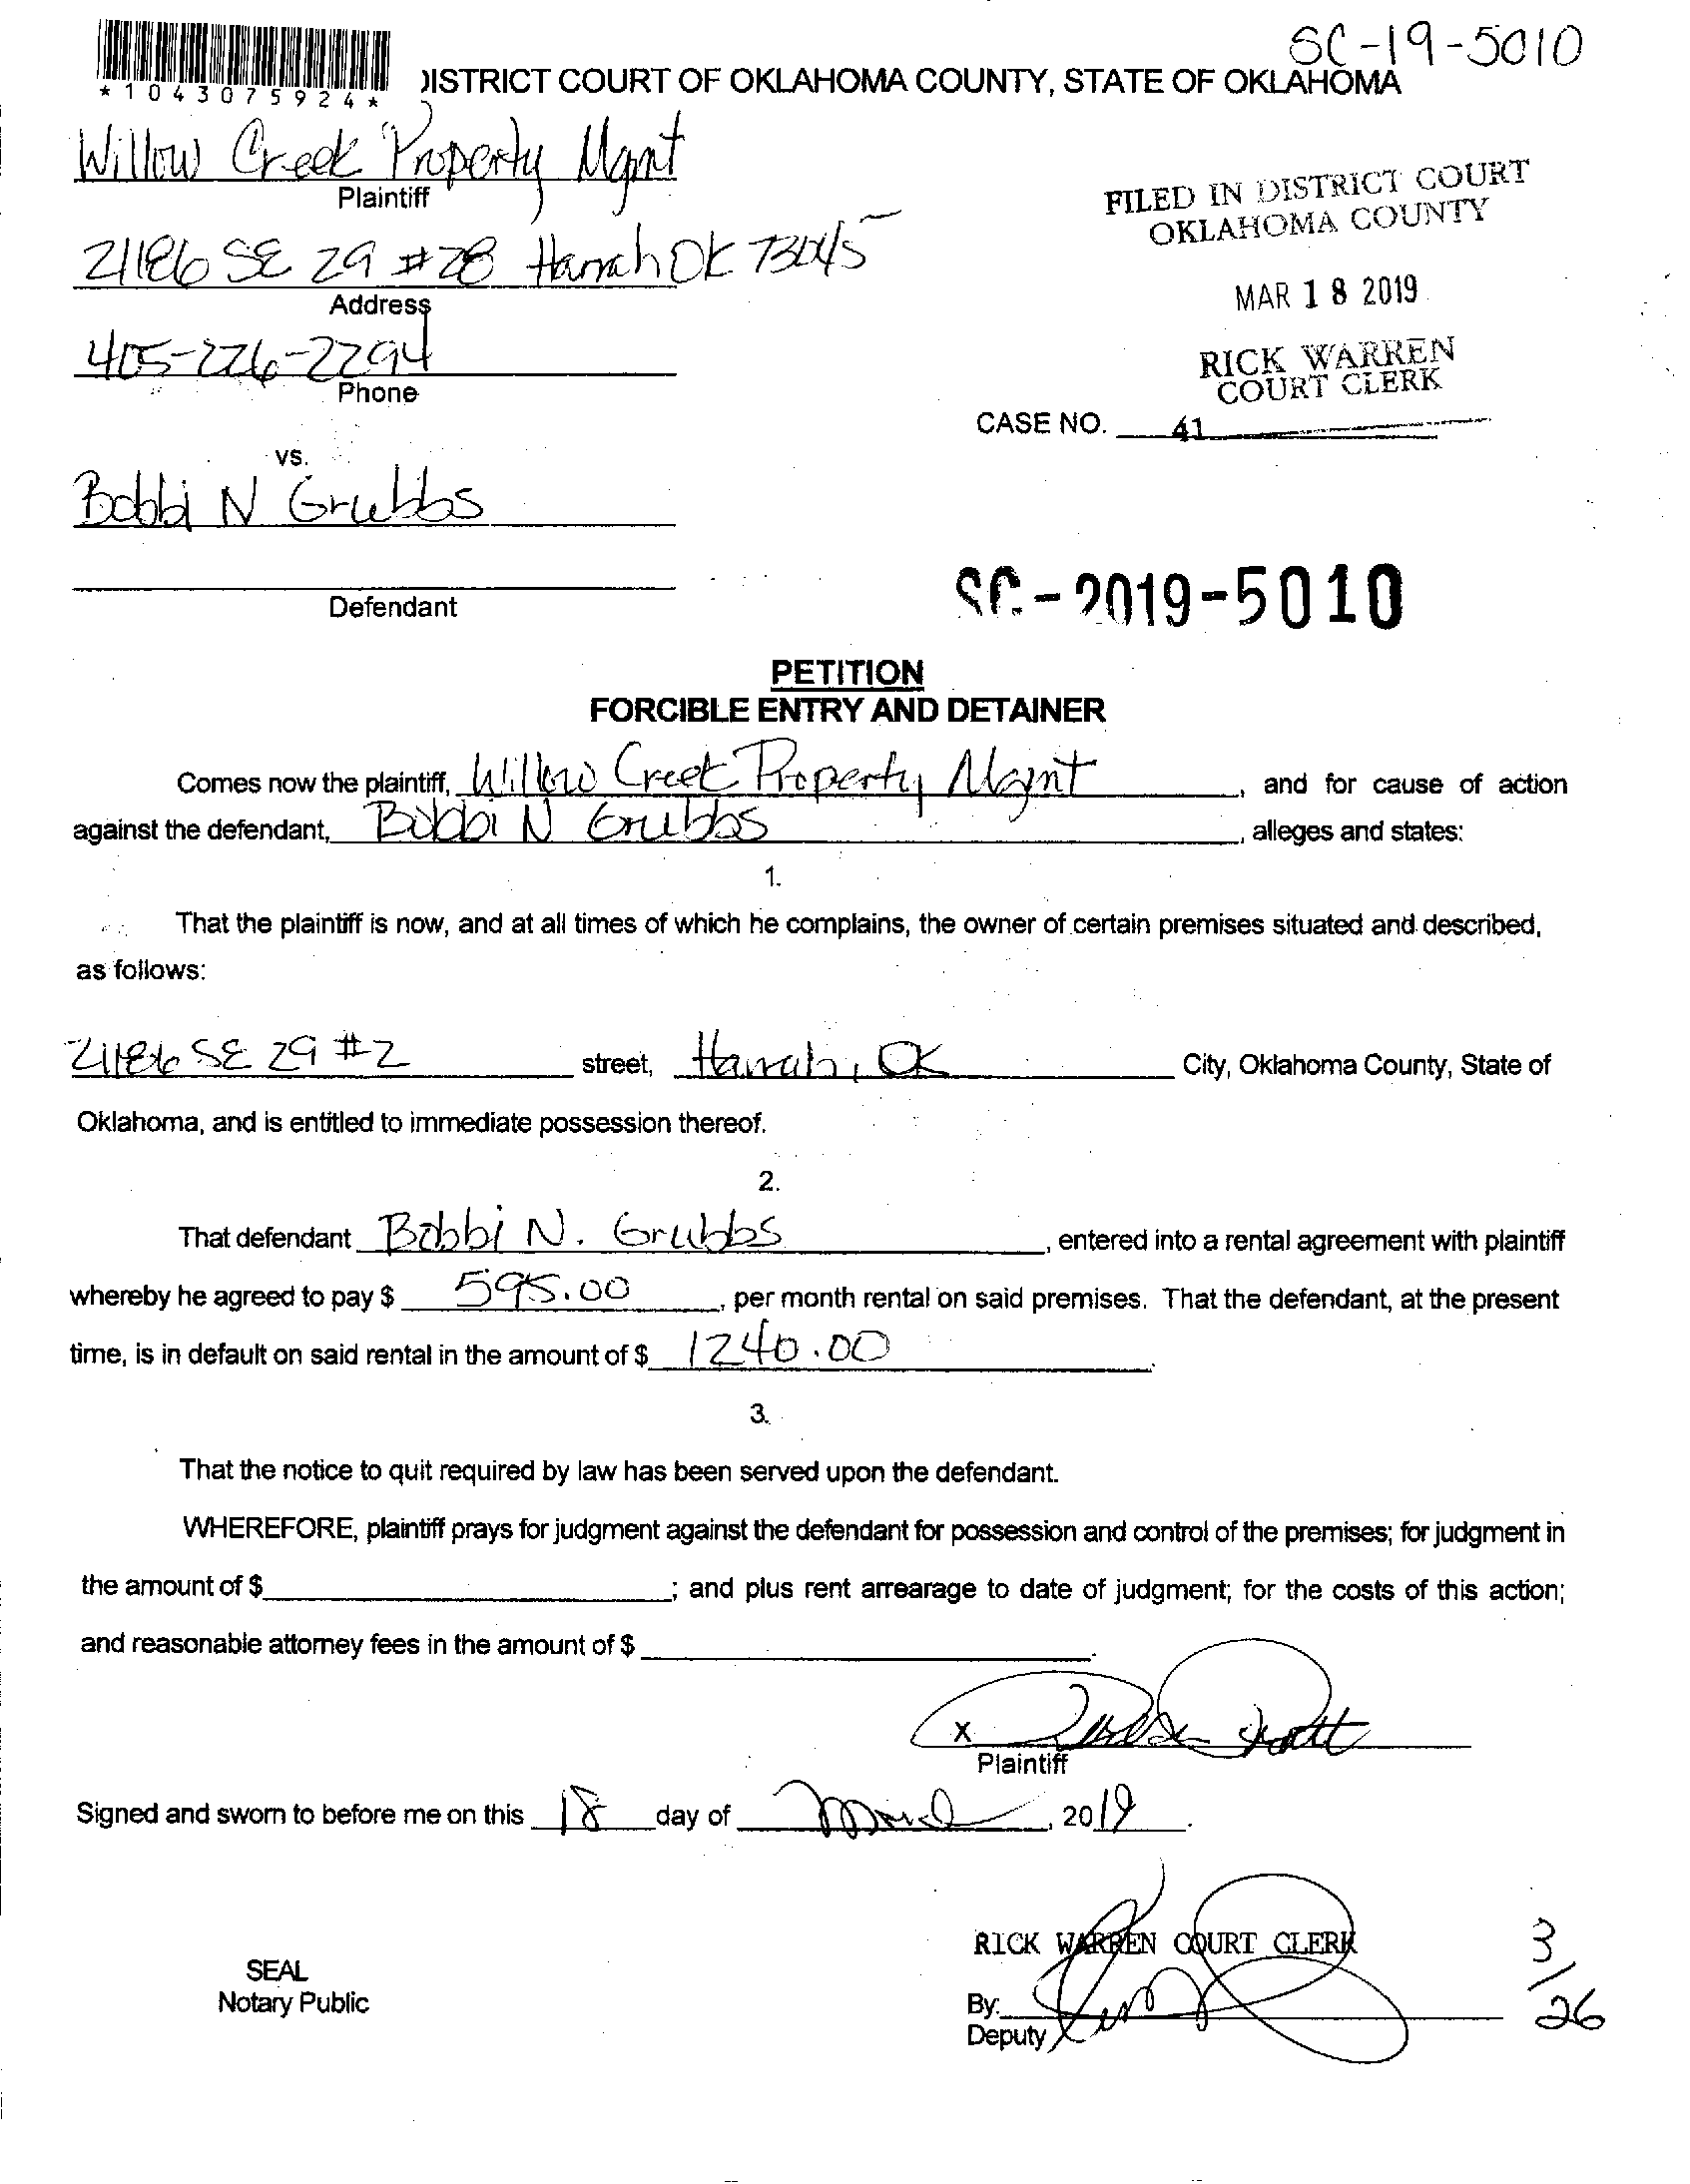 SC-19-5010
*1043075924*
DISTRICT COURT OF OKLAHOMA COUNTY, STATE OF OKLAHOMA
Willow Creek Property Mgmt
Plaintiff
FILED IN DISTRICT COURT
OKLAHOMA COUNTY
21186 SE 29 #28 Harrah OK 73045
Address
MAR 18 2019
405-226-2294
Phone
RICK WARREN
COURT CLERK
CASE NO. 41
vs.
Bobbi N Grubbs
Defendant
SC-2019-5010
PETITION
FORCIBLE ENTRY AND DETAINER
Comes now the plaintiff, Willow Creek Property Mgmt, and for cause of action
against the defendant, Bobbi N Grubbs, alleges and states:
1.
That the plaintiff is now, and at all times of which he complains, the owner of certain premises situated and described,
as follows:
21186 SE 29 #2 street, Harrah, OK City, Oklahoma County, State of
Oklahoma, and is entitled to immediate possession thereof.
2.
That defendant Bobbi N. Grubbs, entered into a rental agreement with plaintiff
whereby he agreed to pay $ 595.00, per month rental on said premises. That the defendant, at the present
time, is in default on said rental in the amount of $ 1240.00.
3.
That the notice to quit required by law has been served upon the defendant.
WHEREFORE, plaintiff prays for judgment against the defendant for possession and control of the premises; for judgment in
the amount of $; and plus rent arrearage to date of judgment; for the costs of this action;
and reasonable attorney fees in the amount of $.
X
Plaintiff
Signed and sworn to before me on this 18 day of March, 2019.
RICK WARREN COURT CLERK
3/26
SEAL
Notary Public
By:
Deputy